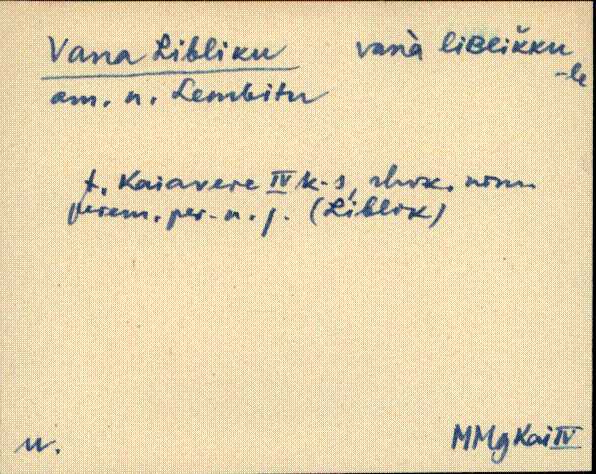 Vana Libliku vanà liʙlikku
-le
am. n. Lembitu
t. Kaiavere IV k-s, rhvk. nim.
perem. per. n. j. (Liblik)
n.
MMg Kai IV